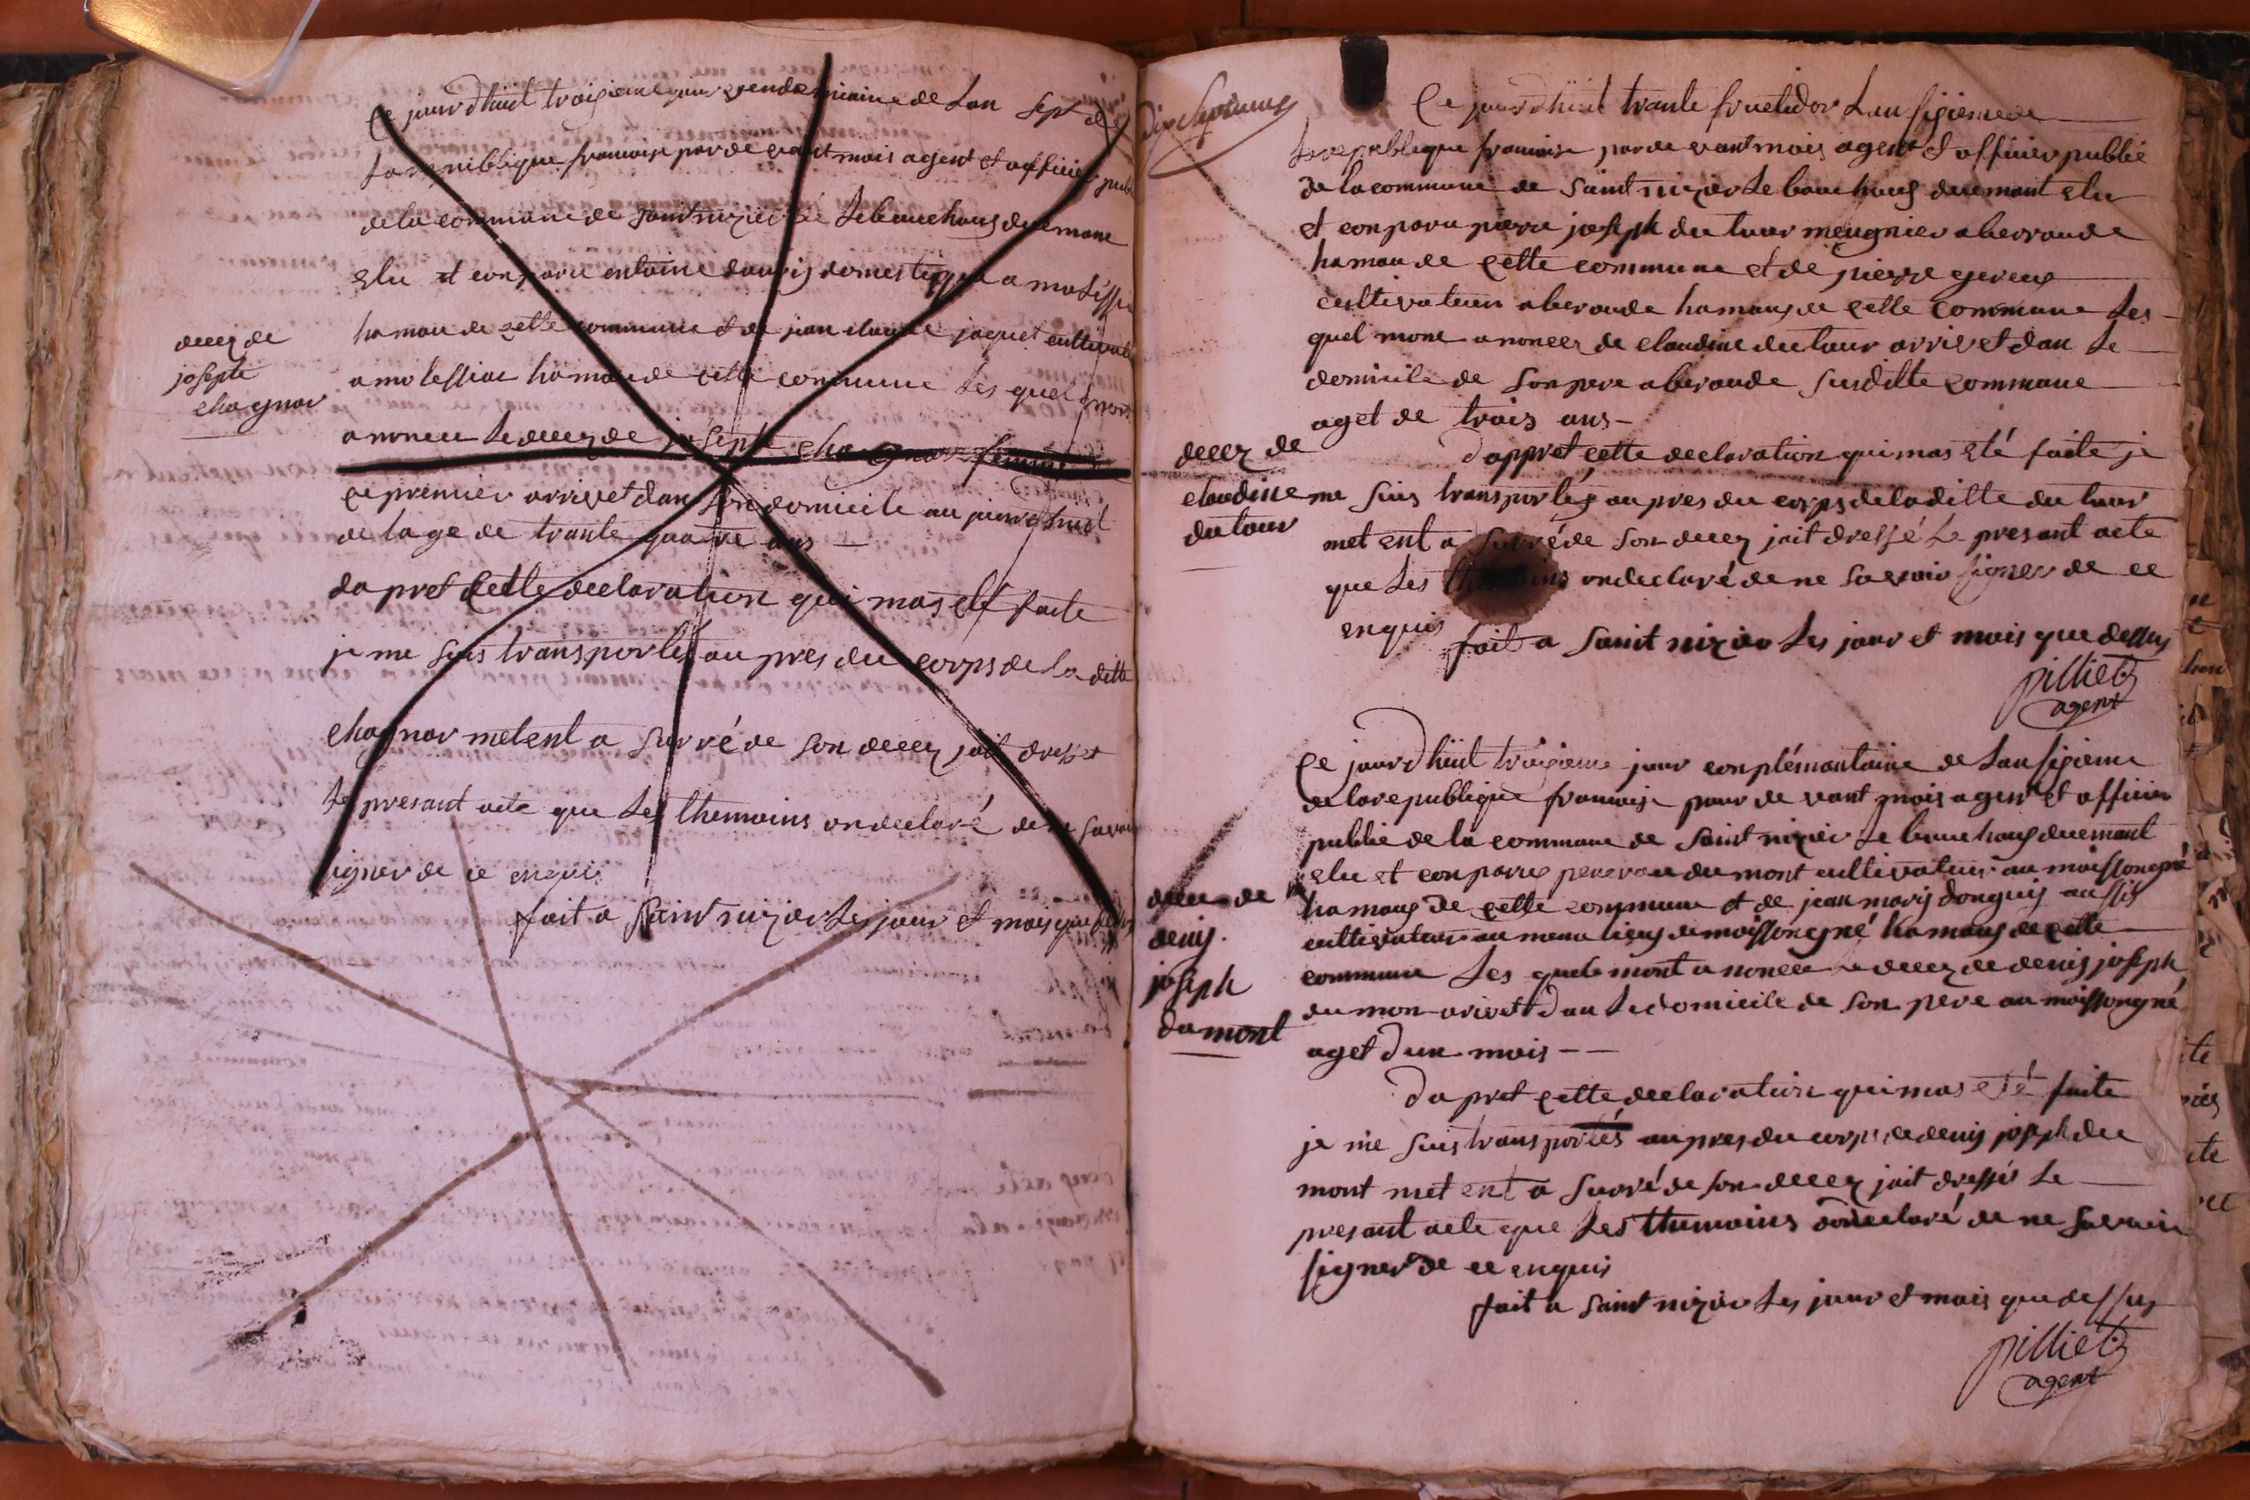 Ce jourd huit troisieme jour vendemiaire de Lan sept de
La republique francoise par de vant mois agent et officier publi
de la commune de saint nizier Le bouchous duemant
elu et conparu entoine
hamau de cette commune et de jean claude jaquet cultivat
a molession hamau de cette commune Les quel mon
a noncer Le decez de josepte chagnar femme
ce premier arrivet dans son domicile au jourdhuit
de lage de trante quatre ans
da pret Cette declaration qui mas eté faite
je me suis transportés au pres du corps de La ditte
chagnar metent a surré de son decez jait dresset
Le presant acte que Les themoins on declaré de ne savoir
signer de ce enquis
fait a saint nizier Les jour et mois que dessus
decez de
josepte
chagnar
dix septieme
Ce jourd huit trante fructidor Lan sixieme de
La republique francoise par de vant mois agent et officier publié
de la commune de saint nizier Le bouchous duemant elu
et conparu pierre joseph du tour meugnier a beroude
hamau de cette commune et de pierre
cultivateur a beroude hamaus de cette commune Les
quel mone a noncer de claudine du tour arrivet dan Le
domicile de son pere a beroude susditte commune
aget de trois ans
dappret cette declaration qui mas eté faite je
me suis transportés au pres du corps de la ditte du tour
met ent a surré de son decez jait dressé Le presant acte
que Les themoins on declaré de ne savoir signer de ce
enquis
fait a saint nizier Les jour et mois que dessus
pilliet
agent
decez de
claudine
du tour
Ce jourd huit troisieme jour conplémantaire de Lan sixieme
de la republique francoise par de vant mois agent et officier
publié de la commune de saint nizier Le bouchous duemant
elu et conparu du mont cultivateur au moissongné
hamaus de cette commune et de jean marij donguis aussis
cultivateur au meme lieus de moissongné hamaus de cette
commune Les quels mont a noncer Le decez de denis joseph
du mon arivet dan Le domicile de son pere au moissongné
aget d un mois
da pret cette declaration qui mas eté faite
je me suis transportés au pres du corps de denis joseph du
mont met ent a surré de son decez jait dressés Le
presant acte que Les themoins on declaré de ne savoir
signer de ce enquis
fait a saint nizier Les jour et mois que dessus
pilliet
agent
decez de
denis
joseph
du mont